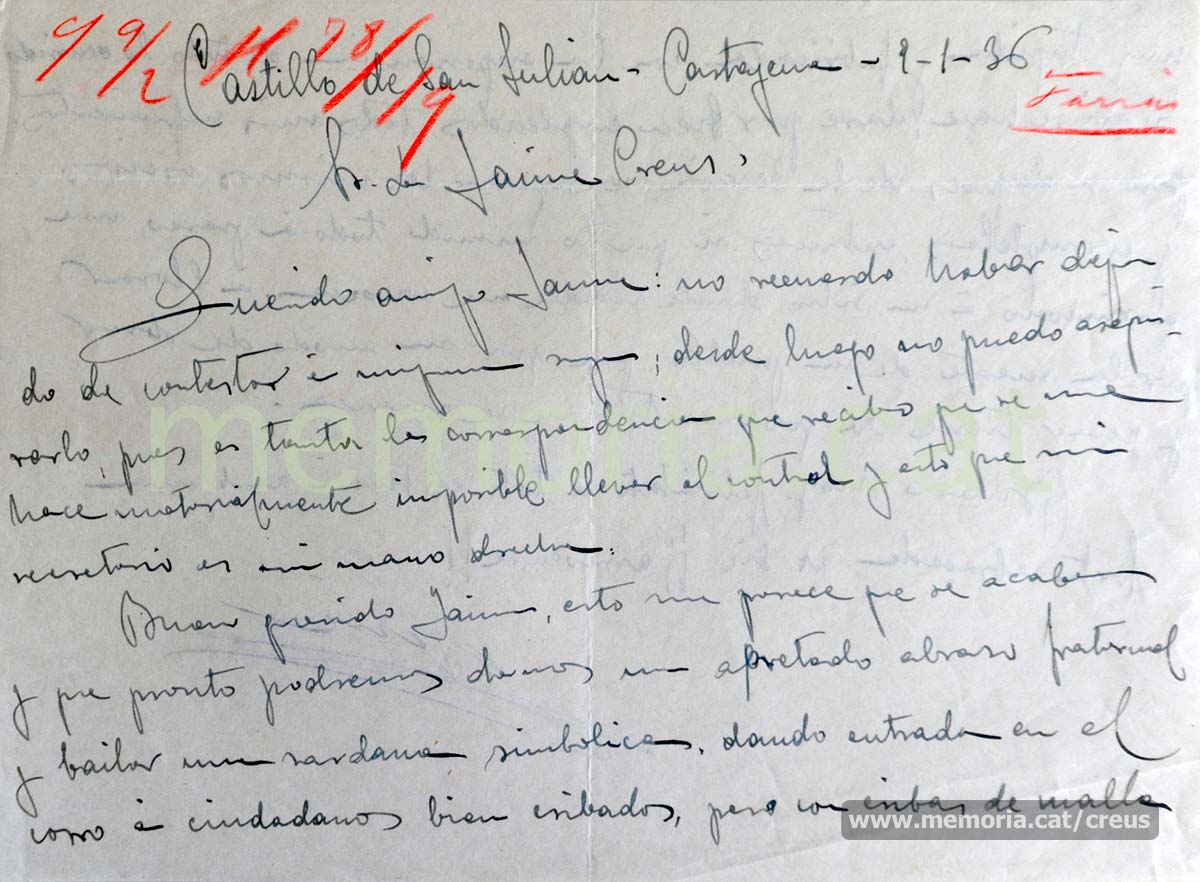 9 9/2 11 28/1/9
Castillo de San Julian - Cartagena - 2-1-36
Farrús
Sr. Dn Jaime Creus.
Querido amigo Jaime: no recuerdo haber deja
do de contestar à ninguna suya; desde luego no puedo asegu-
rarlo, pues es tanta la correspondencia que recibo que se me
hace materialmente imposible llevar el control y esto que mi
secretario es mi mano derecha.
Bueno querido Jaime, esto me parece que se acaba
y que pronto podremos darnos un apretado abraso fraternal
y bailar una sardana simbolica, dando entrada en el
corro à ciudadanos bien cribados, pero con cribas de malla
memoria.cat
www.memoria.cat/creus